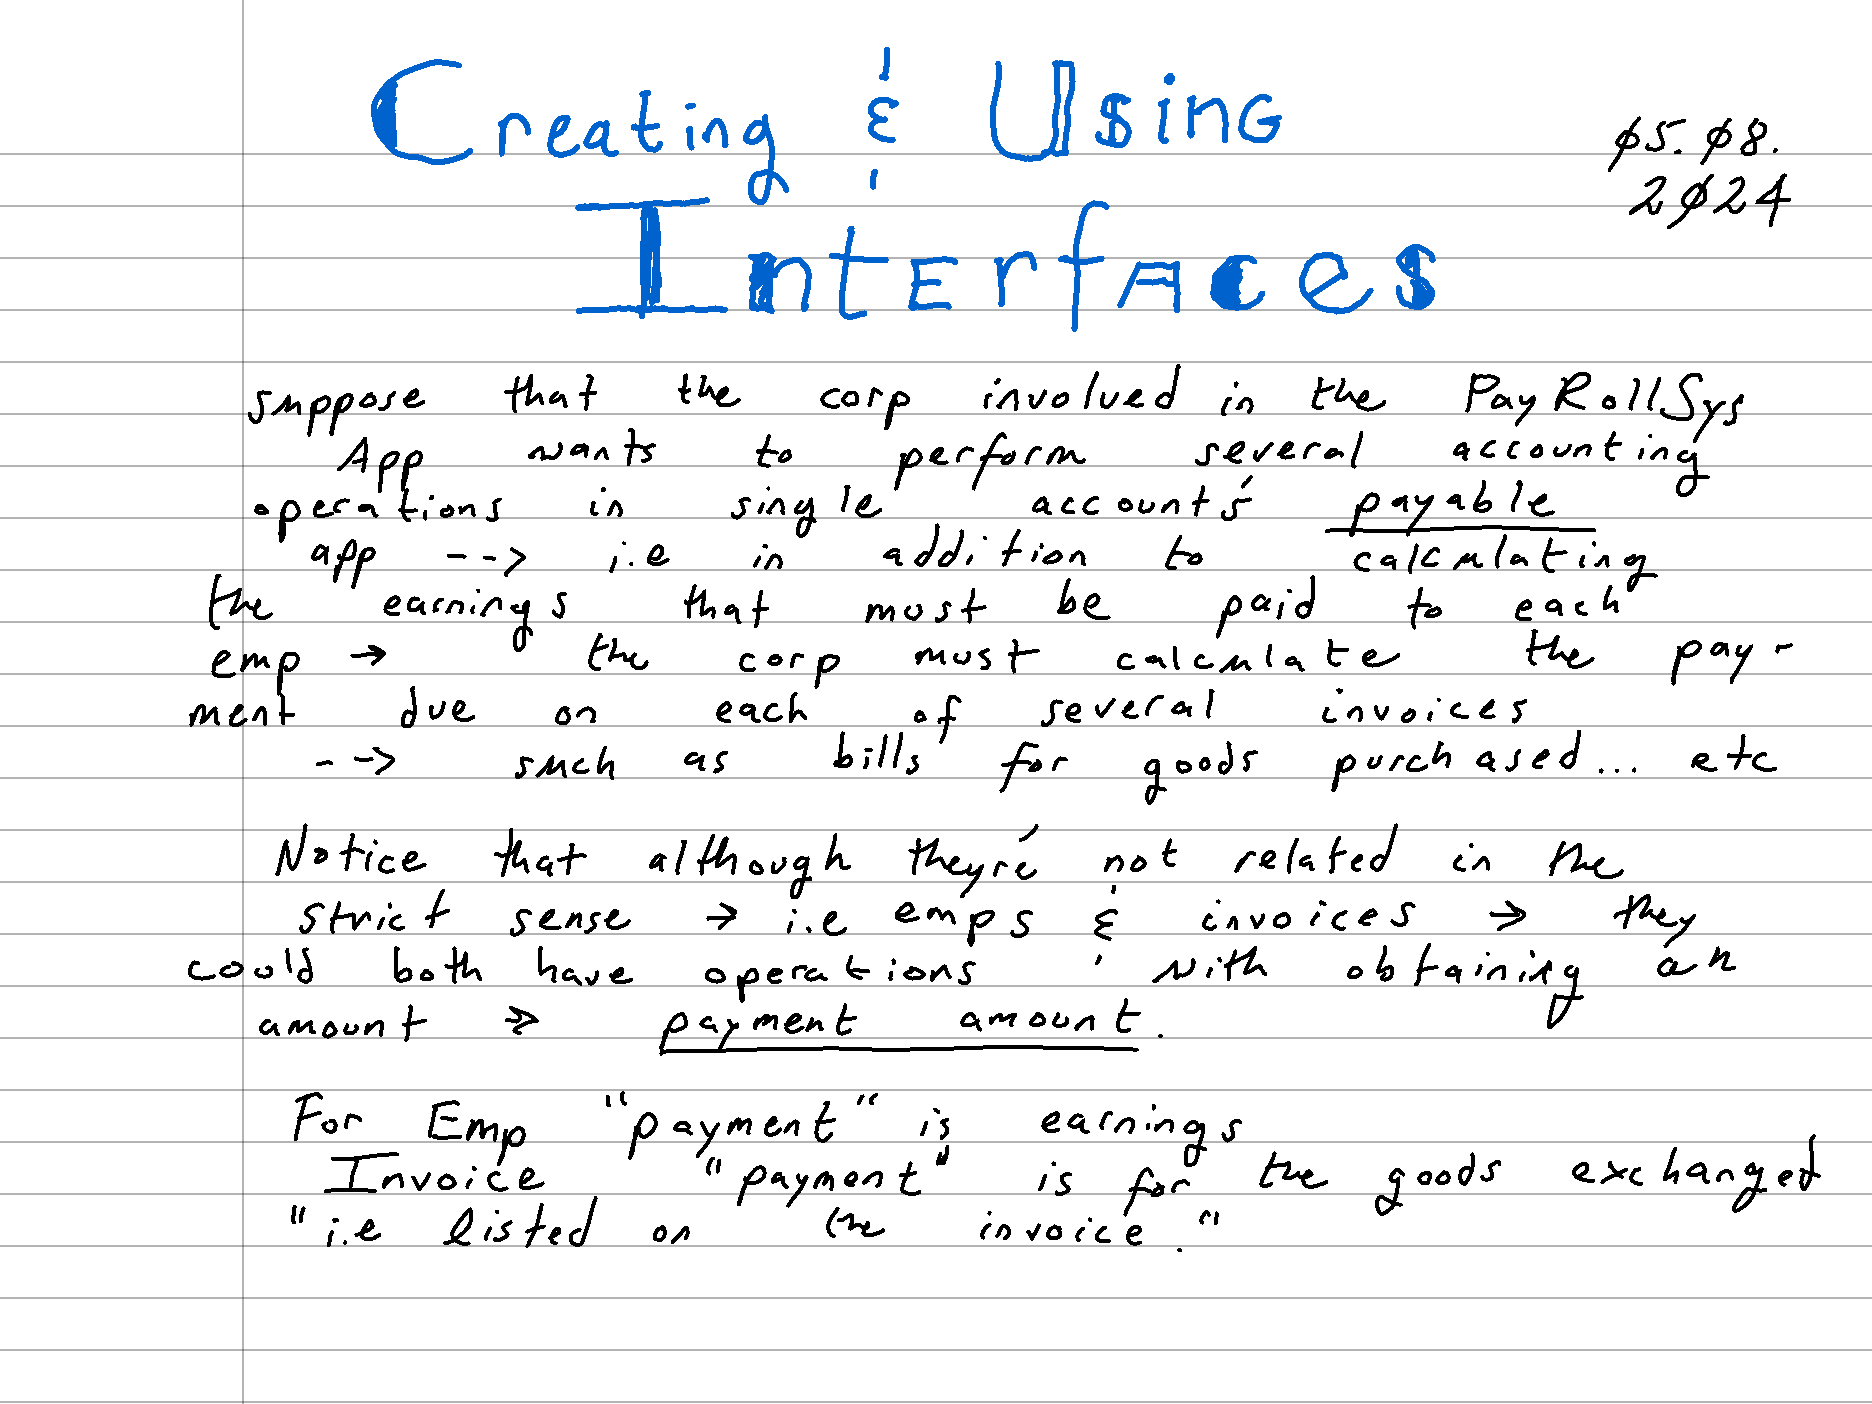 Creating & Using
Interfaces
05.08.
2024
suppose that the corp involved in the PayRollSys
App wants to perform several accounting
operations in single account's payable
app --> i.e in addition to calculating
the earnings that must be paid to each
emp → the corp must calculate the pay-
ment due on each of several invoices
--> such as bills for goods purchased... etc
Notice that although they're not related in the
strict sense → i.e emps & invoices → they
could both have operations with obtaining an
amount → payment amount.
For Emp "payment" is earnings
Invoice "payment" is for the goods exchanged
"i.e listed on the invoice."